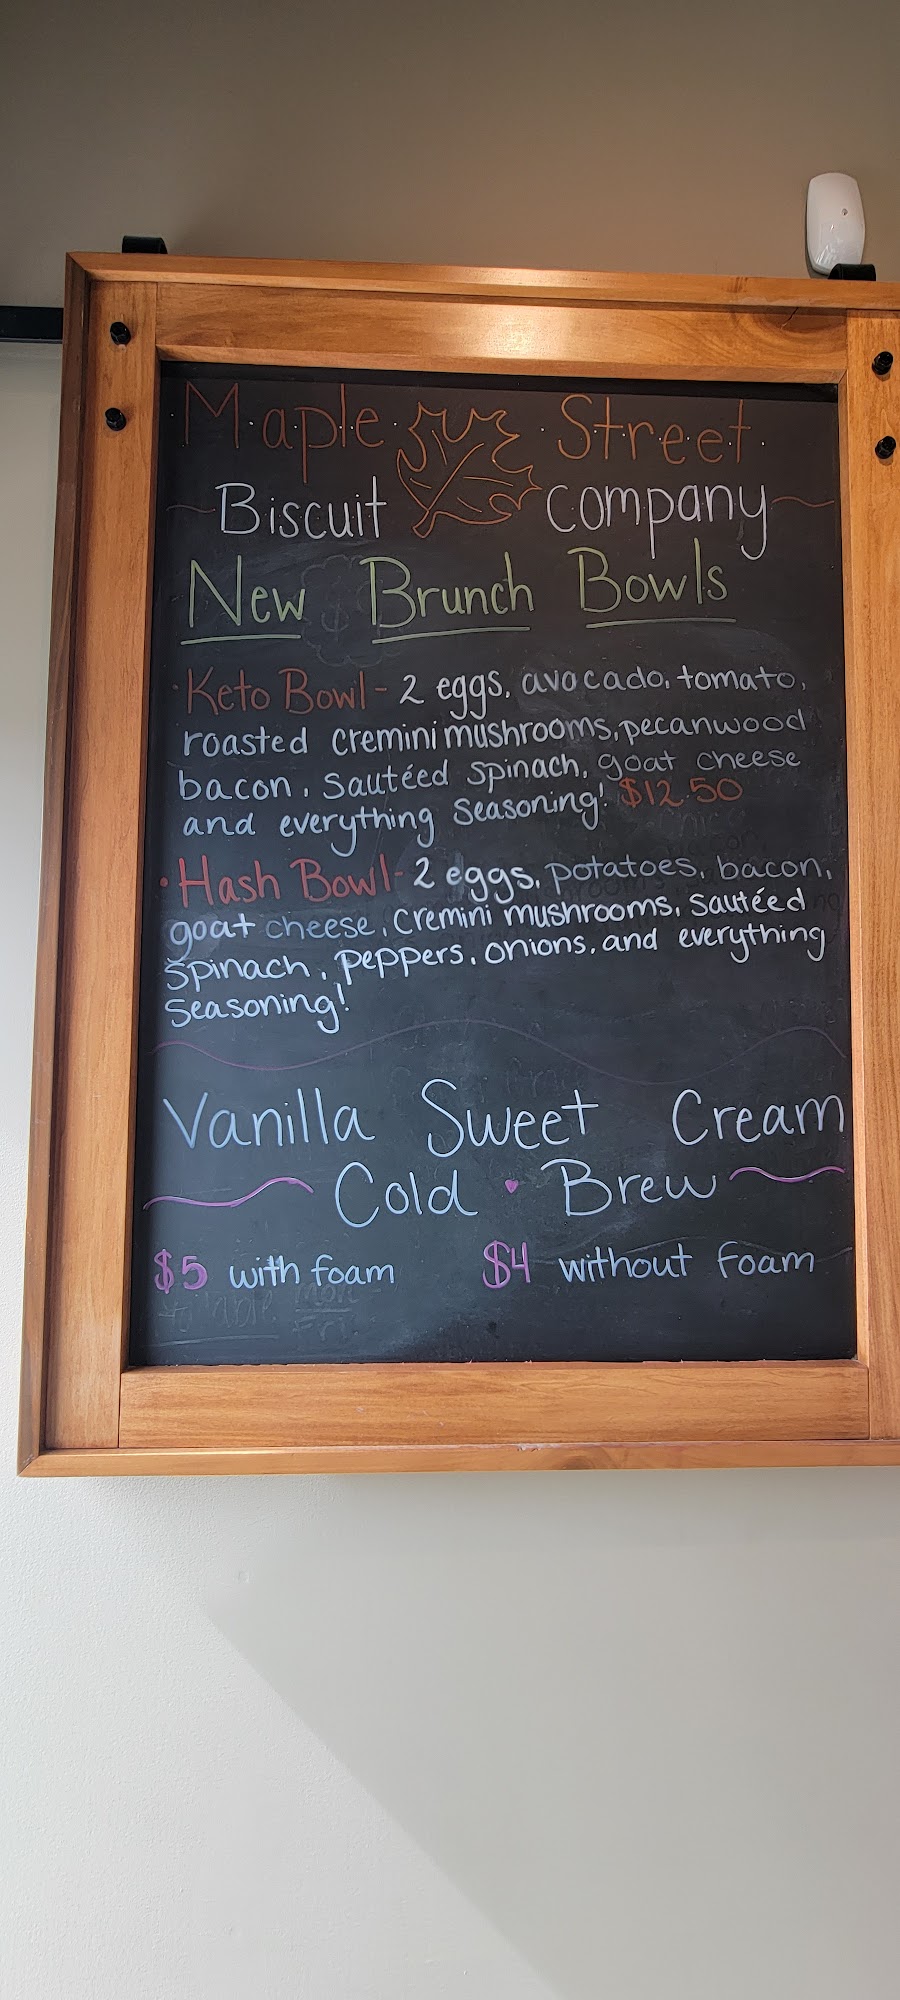 Maple Street
Biscuit Company
New Brunch Bowls
• Keto Bowl - 2 eggs, avocado, tomato,
roasted cremini mushrooms, pecanwood
bacon, sautéed spinach, goat cheese
and everything seasoning! $12.50
• Hash Bowl - 2 eggs, potatoes, bacon,
goat cheese, cremini mushrooms, sautéed
spinach, peppers, onions, and everything
seasoning!
Vanilla Sweet Cream
Cold Brew
$5 with foam $4 without foam